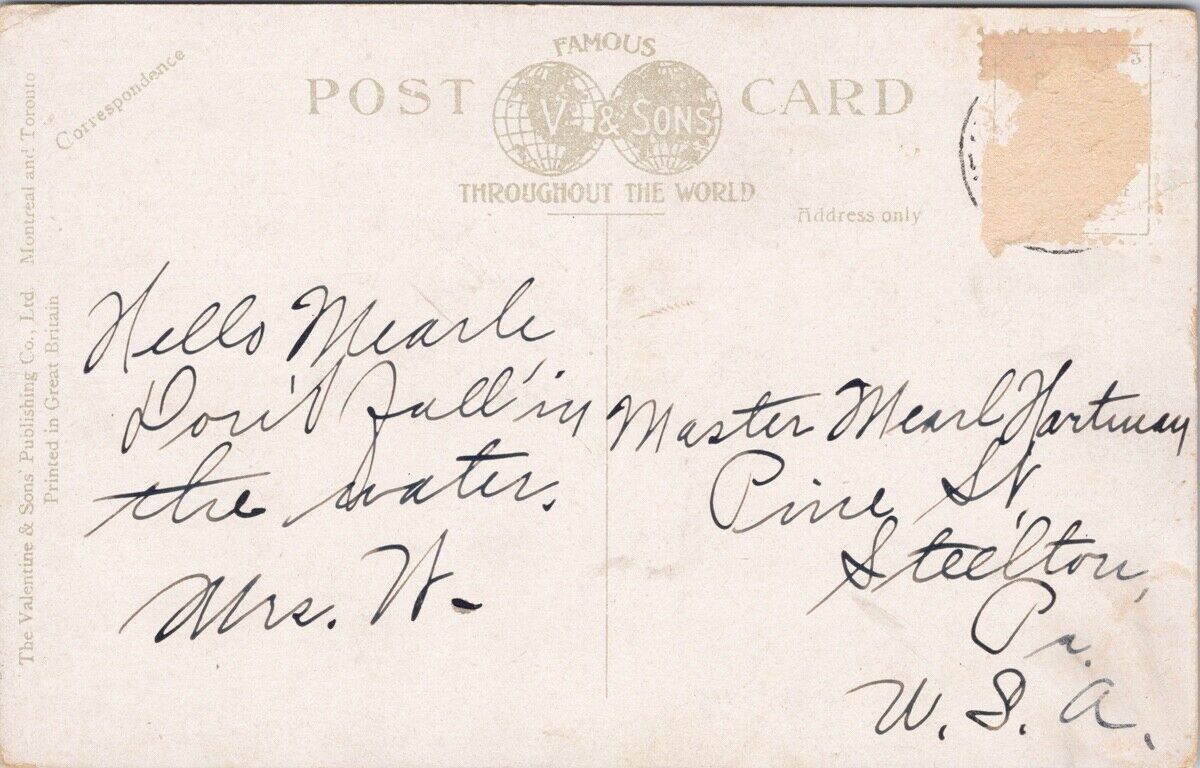 FAMOUS
POST CARD
V & SONS
THROUGHOUT THE WORLD
Correspondence
Address only
The Valentine & Sons' Publishing Co., Ltd. Montreal and Toronto
Printed in Great Britain
Hello Mearle
Don't fall in
the water.
Mrs. W.
Master Mearl Hartman
Pine St.
Steelton,
Pa.
U. S. A.